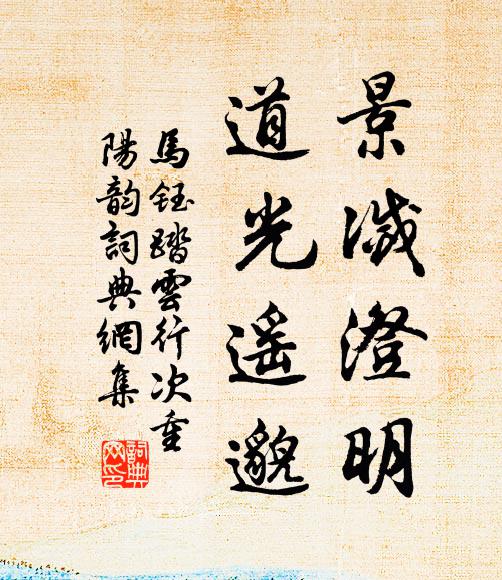 景滅澄明
道光遙邈
馬鈺踏雲行次重
陽韵詞典網集
詞典网印